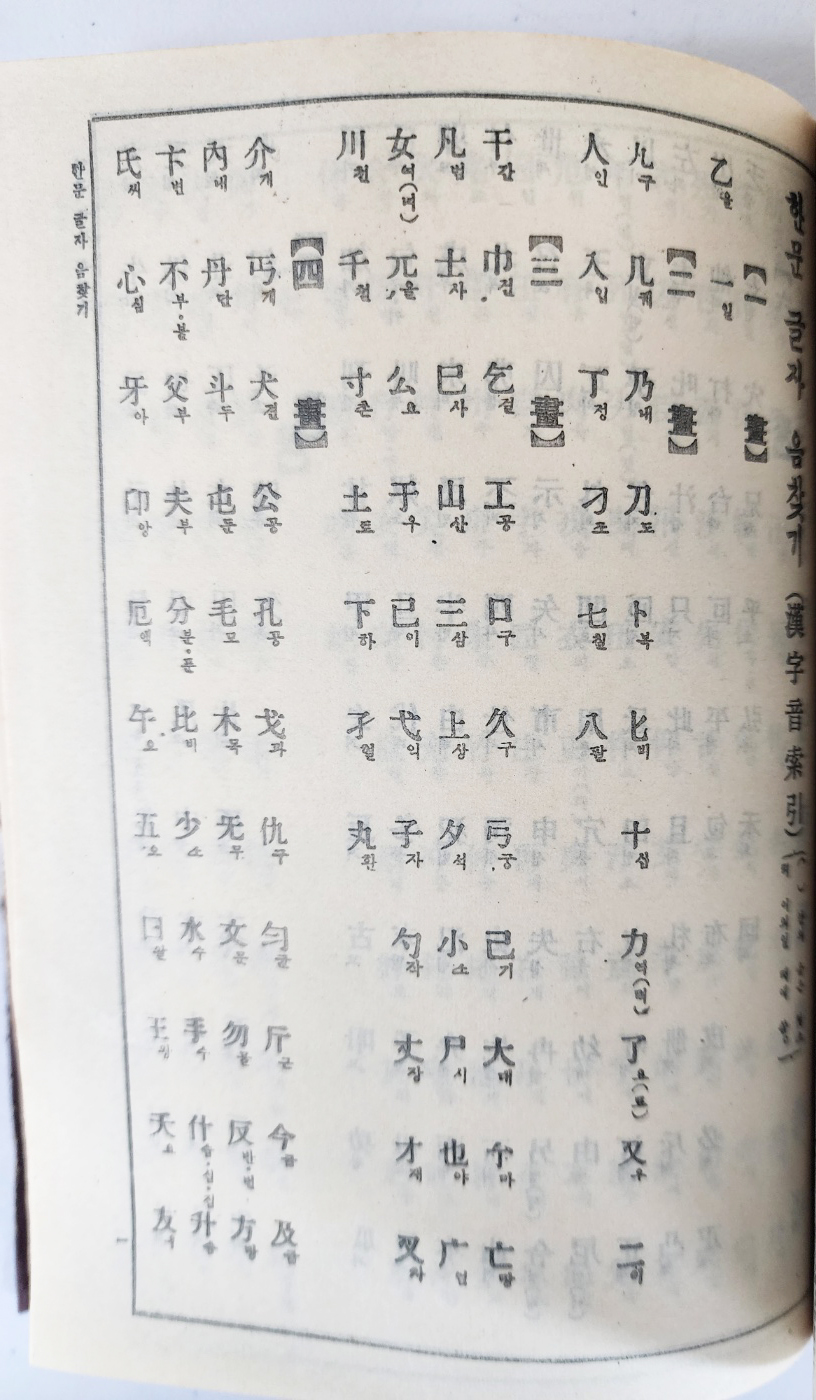 한문 글자 음찾기 (漢字音索引)
【一 畫】
乙을 一일
【二 畫】
九구 几궤 乃내 刀도 卜복 匕비 十십 力역(력) 了요(료) 又우 二이
人인 入입 丁정 刁조 七칠 八팔
【三 畫】
干간 巾건 乞걸 工공 口구 久구 弓궁 己기 大대 亇마 亡망
凡범 士사 巳사 山산 三삼 上상 夕석 小소 尸시 也야 广엄
女여(녀) 兀올 幺요 于우 已이 弋익 子자 勺작 丈장 才재 叉차
川천 千천 寸촌 土토 下하 孑혈 丸환
【四 畫】
介개 丐개 犬견 公공 孔공 戈과 仇구 勻균 斤근 今금 及급
內내 丹단 斗두 屯둔 毛모 木목 无무 文문 勿물 反반·번 方방
卞변 不부·불 父부 夫부 分분·푼 比비 少소 水수 手수 什습·십·집 升승
氏씨 心심 牙아 卬앙 厄액 午오 五오 曰왈 王왕 夭요 友우
한문 글자 음찾기
一